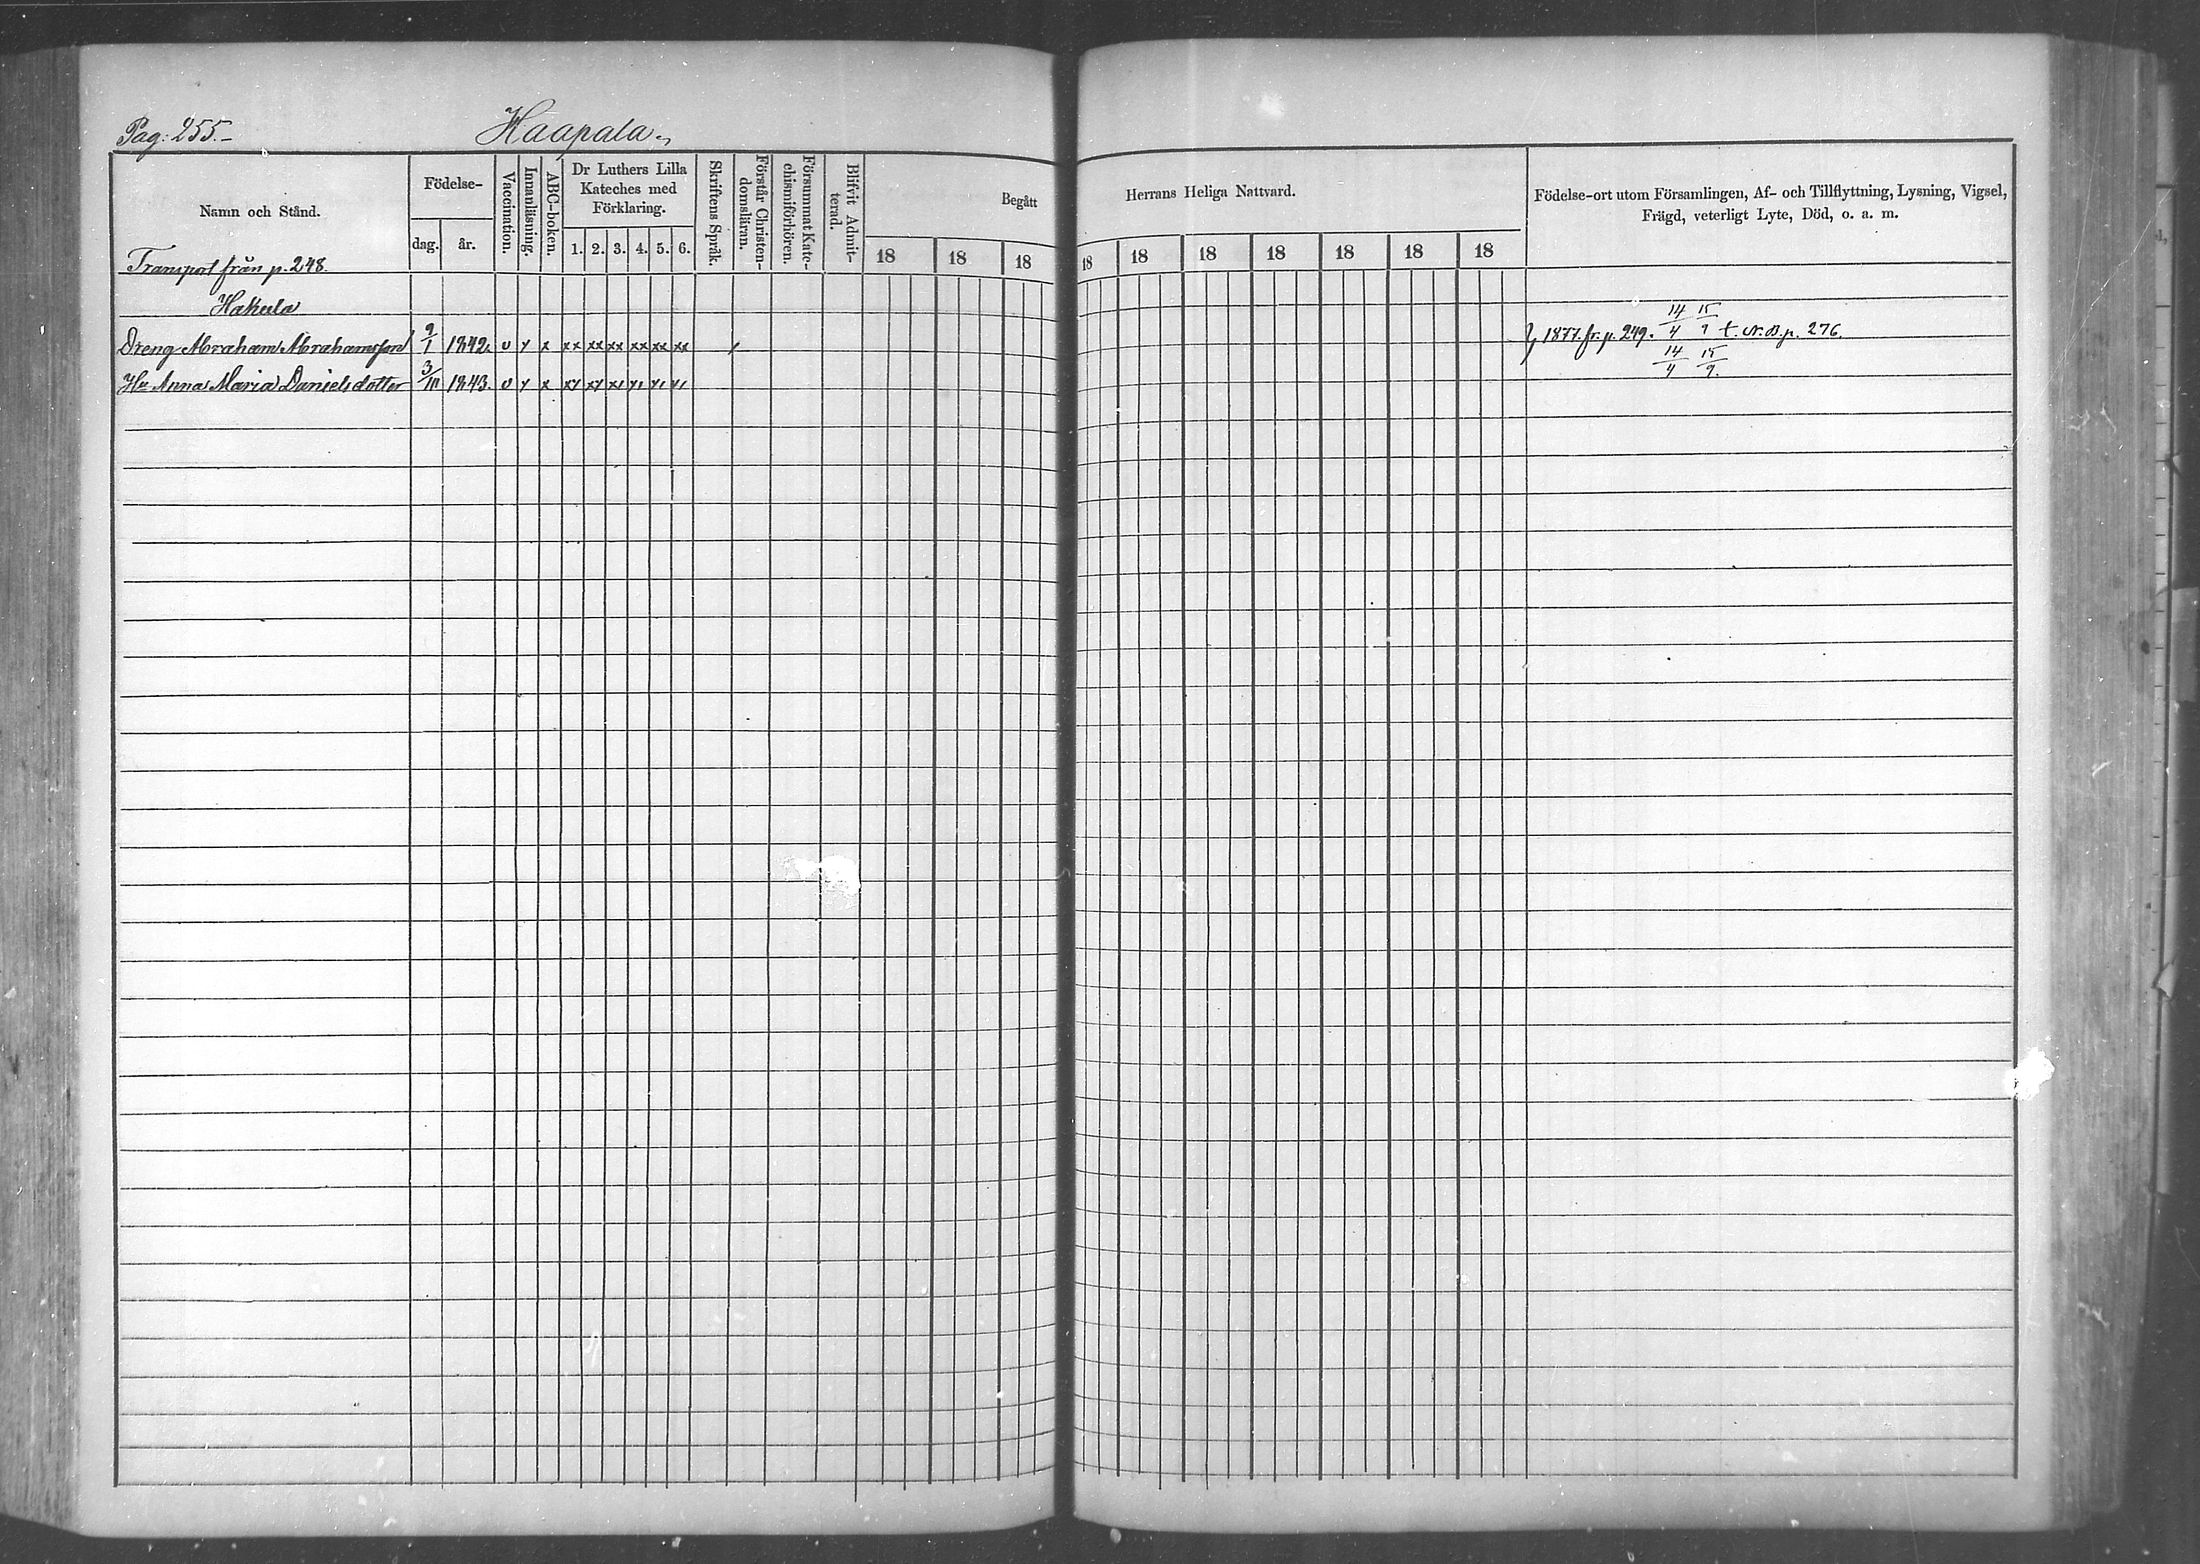 Pag: 255.-
Haapala.
Namn och Stånd.
Födelse-
dag. år.
Vaccination.
Innanläsning.
ABC-boken.
Dr Luthers Lilla
Kateches med
Förklaring.
1. 2. 3. 4. 5. 6.
Skriftens Språk.
Förstår Christen-
domsläran.
Försummat Kate-
chismiförhören.
Blifvit Admit-
terad.
Begått
18 18 18
Herrans Heliga Nattvard.
18 18 18 18 18 18 18
Födelse-ort utom Församlingen, Af- och Tillflyttning, Lysning, Vigsel,
Frägd, veterligt Lyte, Död, o. a. m.
Transport från p. 248.
Hakula
Dreng Abraham Abrahamsson 9/1 1842. v x x xx xx xx xx xx xx
} 1877. fr. p. 249. 14/4 15/9 t. N.B. p. 276.
Hu Anna Maria Danielsdotter 3/III 1843. v x x
14/4 15/9.